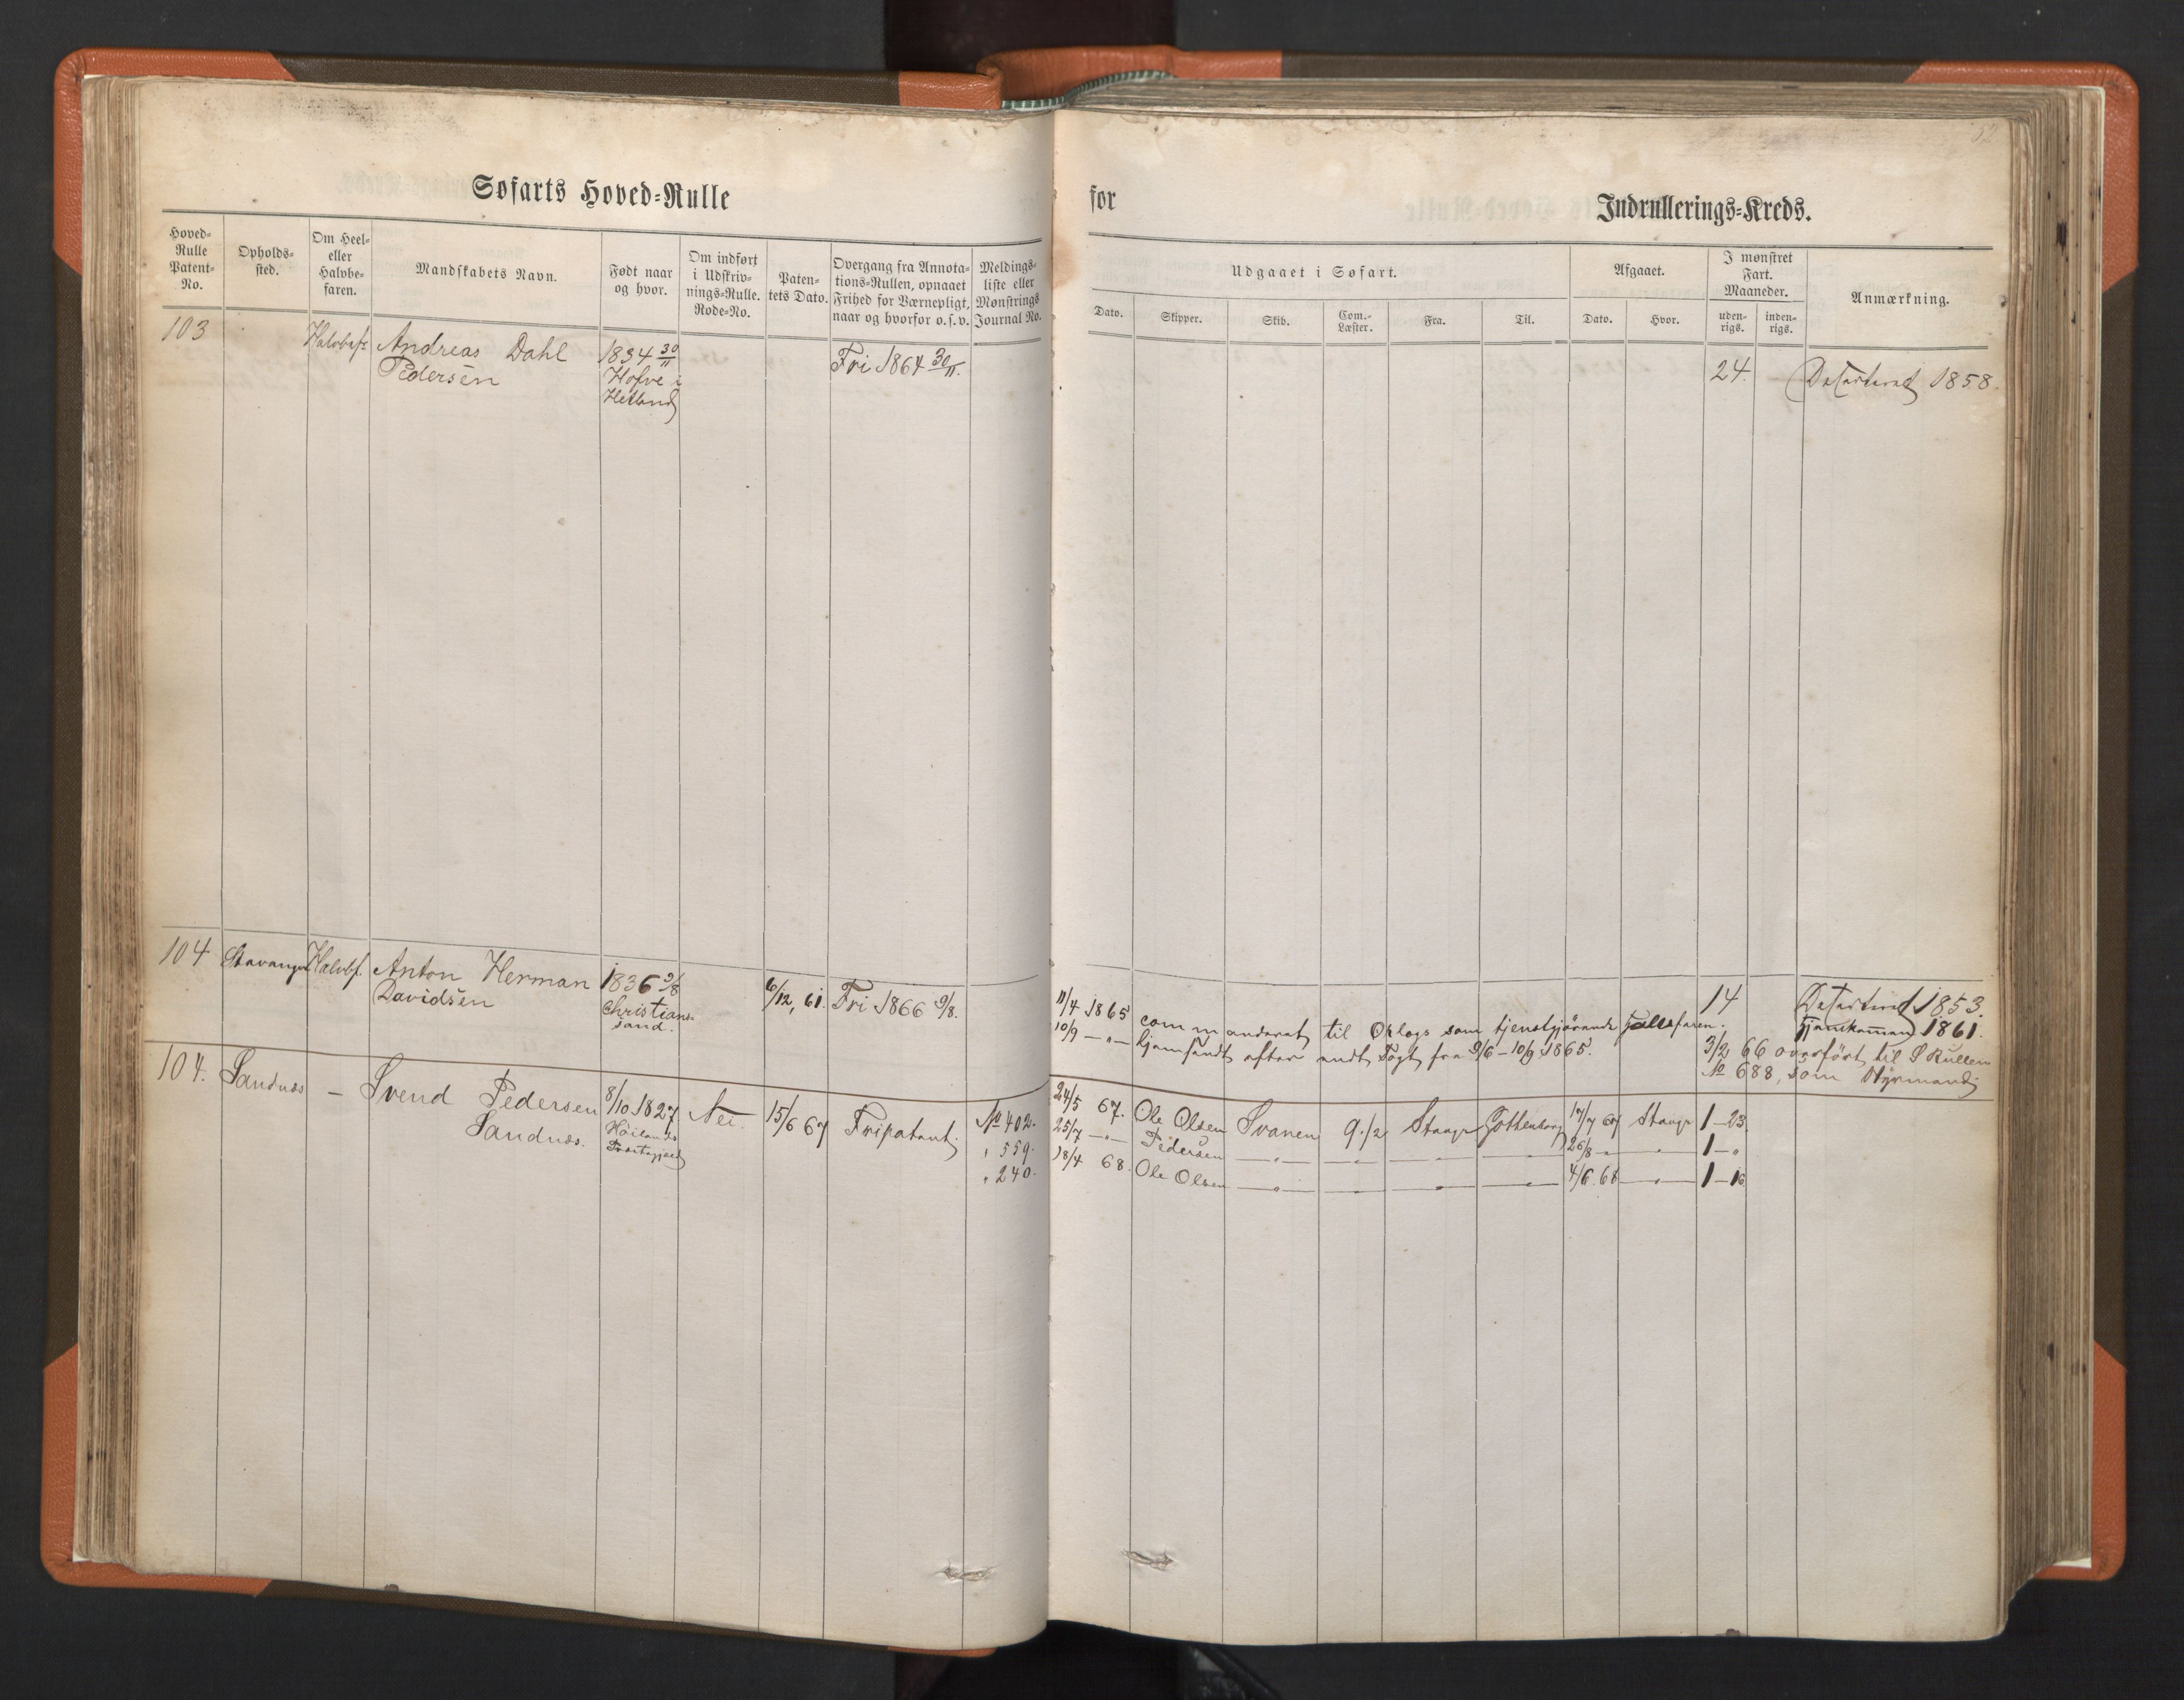 52
Søfarts Hoved-Rulle
for
Indrullerings-Kreds.
Hoved-
Rulle
Patent-
No.
Opholds-
sted.
Om Heel-
eller
Halvbe-
faren.
Mandskabets Navn.
Født naar
og hvor.
Om indført
i Udskriv-
nings-Rulle.
Rode-No.
Paten-
tets Dato.
Overgang fra Annota-
tions-Rullen, opnaaet
Frihed for Værnepligt,
naar og hvorfor o.s.v.
Meldings-
liste eller
Mønstrings
Journal No.
Udgaaet i Søfart.
Dato.
Skipper.
Skib.
Com.-
Læster.
Fra.
Til.
Afgaaet.
Dato.
Hvor.
I mønstret
Fart.
Maaneder.
uden-
rigs.
inden-
rigs.
Anmærkning.
103
Halvbef.
Andreas Dahl
Pedersen
1834 30/11
Hofve i
Hetland
Fri 1864 30/11.
24.
1858.
104
Stavanger
Halvbf.
Anton Herman
Davidsen
1836 9/8
Christian-
sand.
6/12, 61.
Fri 1866 9/8.
11/4 1865 commanderet til Orlogs som tjenstgjörende
10/9 — „ — hjemsendt efter endt Togt fra 9/6 – 10/9 1865.
14
1853.
1861.
3/2 66 overfört til S Rullen
No 688, som Styrmand
104.
Sandnæs
—
Svend Pedersen
Sandnæs.
8/10 1827.
Höilands
Præstegjeld
Nei
15/6 67
Fripatent.
No 402.
„ 559.
„ 240.
24/5 67. Ole Olsen Svanen 9./2 Stavgr Gothenborg 17/7 67 Stavgr 1–23.
25/7 —„— Pedersen —„— —„— —„— —„— 26/8 „ —„— 1–„
18/4 68. Ole Olsen —„— —„— —„— —„— 4/6. 68 —„— 1–16